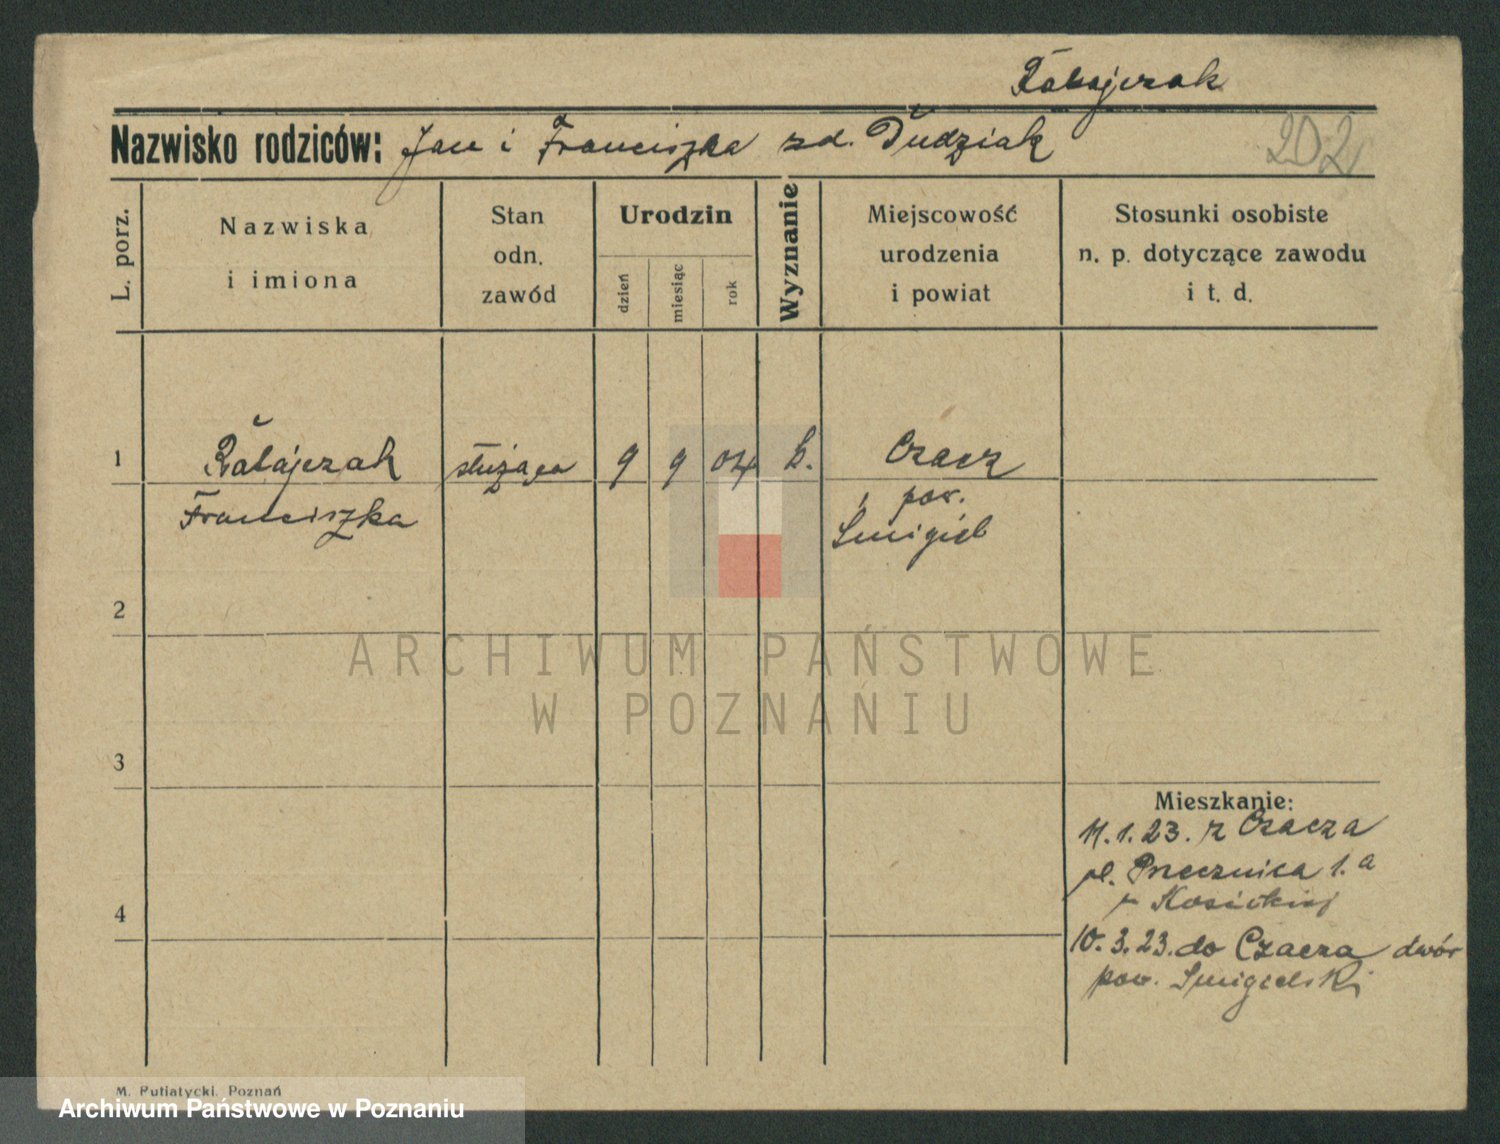 Ratajczak
Nazwisko rodziców: Jan i Franciszka zd. Dudziak
202
L. porz.
Nazwiska
i imiona
Stan
odn.
zawód
Urodzin
dzień
miesiąc
rok
Wyznanie
Miejscowość
urodzenia
i powiat
Stosunki osobiste
n. p. dotyczące zawodu
i t. d.
1
Ratajczak służąca 9 9 04 Czacz
Franciszka
pow.
Śmigiel
2
ARCHIWUM PAŃSTWOWE
W POZNANIU
3
Mieszkanie:
11.1.23. z Czacza
pl. 1.a
4
10.3.23. do Czacza dwór
pow. Śmigielski
M. Putiatycki, Poznań
Archiwum Państwowe w Poznaniu